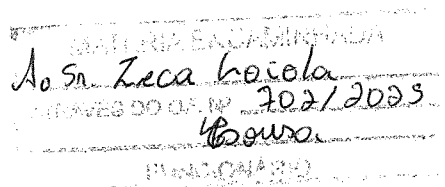 MATÉRIA ENCAMINHADA
Ao Sr. Zeca Loiola
ATRAVÉS DO Of. Nº 702/2023
Sousa
FUNCIONÁRIO